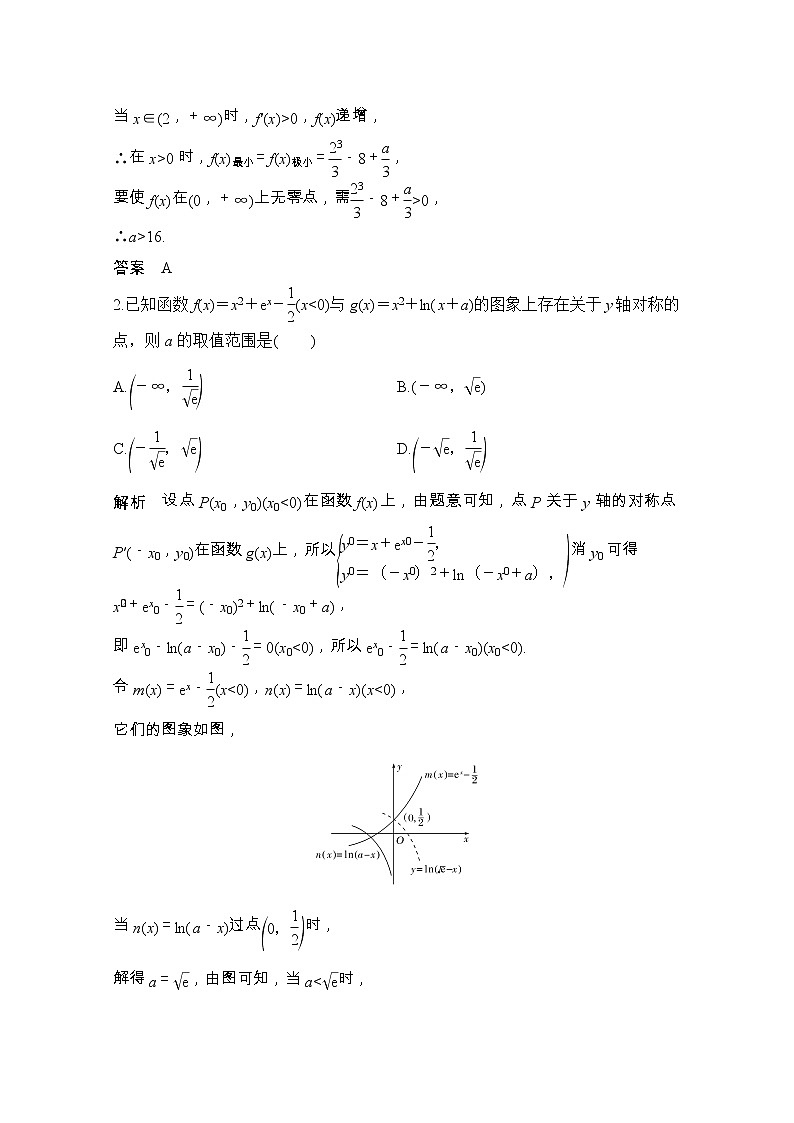 当 x∈(2，+∞)时，f′(x)>0，f(x)递增，
∴在 x>0 时，f(x)最小=f(x)极小=2³/3-8+a/3，
要使 f(x)在(0，+∞)上无零点，需2³/3-8+a/3>0，
∴a>16.
答案 A
2.已知函数 f(x)=x²+eˣ-1/2(x<0)与 g(x)=x²+ln(x+a)的图象上存在关于 y 轴对称的
点，则 a 的取值范围是( )
A.(-∞，1/√e) B.(-∞，√e)
C.(-1/√e，√e) D.(-√e，1/√e)
解析 设点 P(x₀，y₀)(x₀<0)在函数 f(x)上，由题意可知，点 P 关于 y 轴的对称点
P′(-x₀，y₀)在函数 g(x)上，所以{y0=x+e^x0-1/2，
y0=（-x0）2+ln（-x0+a），) 消 y₀ 可得
x0+e^x₀-1/2=(-x₀)²+ln(-x₀+a)，
即 e^x₀-ln(a-x₀)-1/2=0(x₀<0)，所以 e^x₀-1/2=ln(a-x₀)(x₀<0).
令 m(x)=eˣ-1/2(x<0)，n(x)=ln(a-x)(x<0)，
它们的图象如图，
y
m(x)=eˣ-1/2
(0,1/2)
O
x
n(x)=ln(a-x)
y=ln(√e-x)
当 n(x)=ln(a-x)过点(0，1/2)时，
解得 a=√e，由图可知，当 a<√e时，